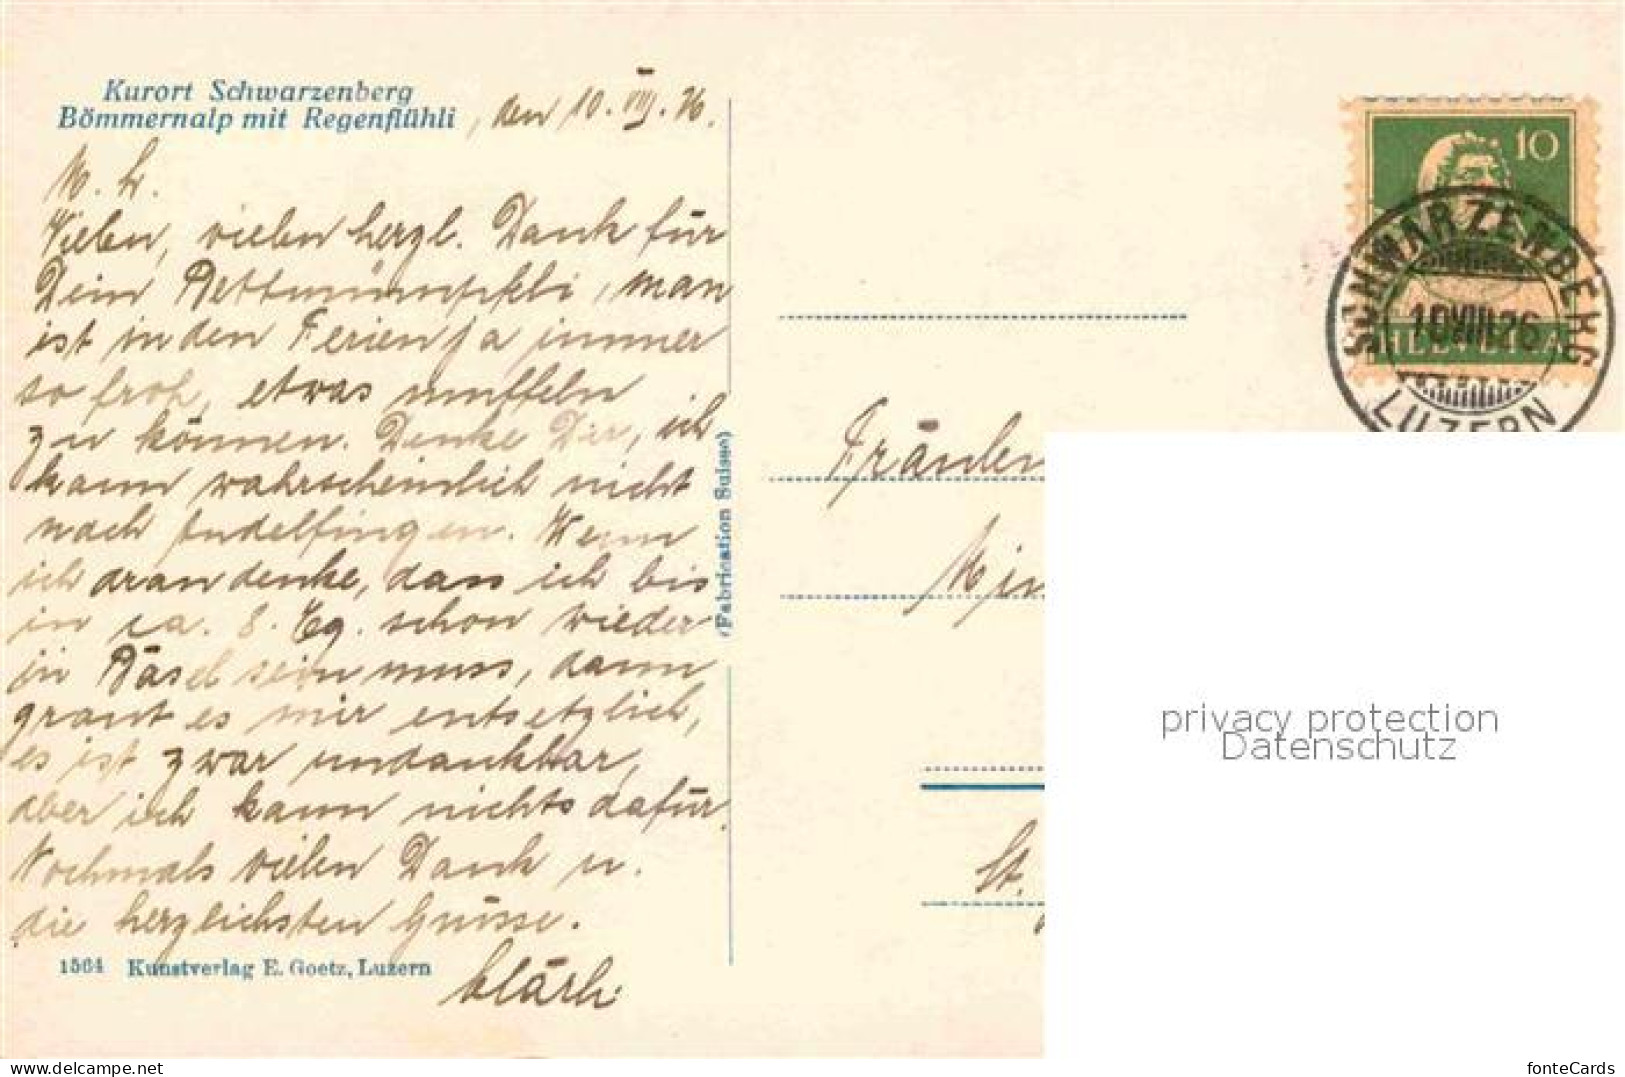 Kurort Schwarzenberg
Bömmernalp mit Regenflühli, den 10. VIII. 26.
M. L.
Vielen, vielen herzl. Dank für
Dein Bettmümpfeli, man
ist in den Ferien ja immer
so froh, etwas muffeln
zu können. Denke Dir, ich
kann wahrscheinlich nicht
nach Andelfingen. Wenn
ich dran denke, dass ich bis
in ca. 8. Tg. schon wieder
in Basel sein muss, dann
graut es mir entsetzlich,
es ist zwar undankbar,
aber ich kann nichts dafür.
Nochmals vielen Dank u.
die herzlichsten Grüsse.
Klärli
1564 Kunstverlag E. Goetz, Luzern
(Fabrication Suisse)
10
HELVETIA
SCHWARZENBERG
10.VIII.26
LUZERN
Fräulein
St.
privacy protection
Datenschutz
https://www.delcampe.net
fonteCards